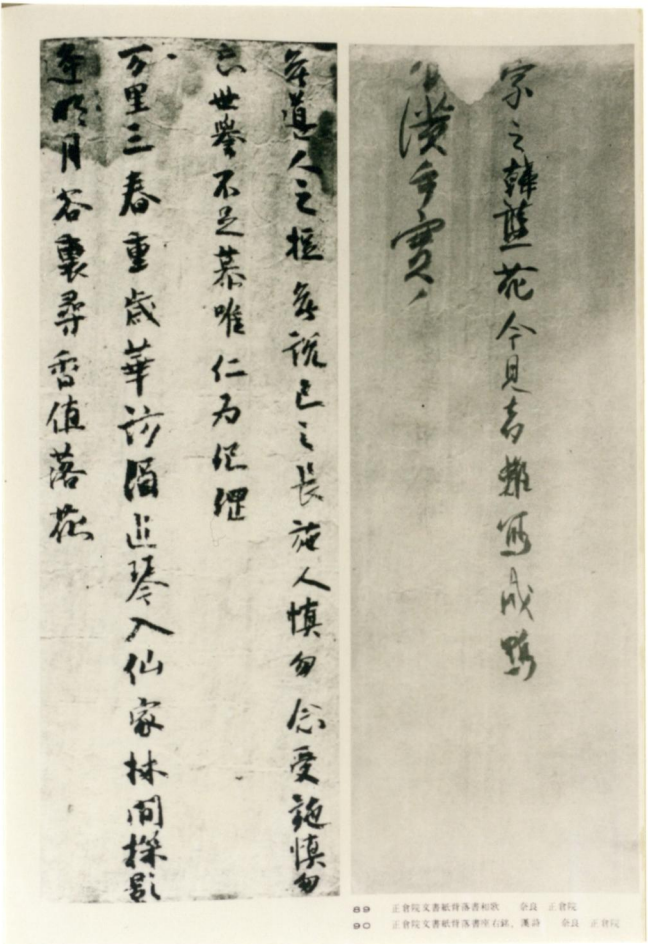 家之韓藍花今見者難寫成鴨
漬手實
無道人之短無說己之長施人慎勿念受施慎勿
忘世譽不足慕唯仁為紀綱
万里三春重歲華訪酒追琴入仙家林間探影
逢明月谷裏尋香值落花
89 正倉院文書紙背落書和歌 奈良 正倉院
90 正倉院文書紙背落書座右銘、漢詩 奈良 正倉院